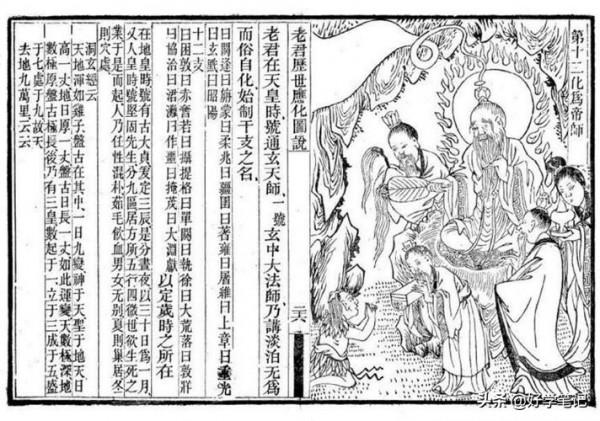 第十二化為帝師
老君歷世應化圖說
二六
老君在天皇時號通玄天師一號玄中大法師乃講淡泊无為
而俗自化始制干支之名
曰閼逢曰旃蒙曰柔兆曰疆圉曰著雍曰屠維曰上章曰重光
曰玄黓曰昭陽
十二支
曰困敦曰赤奮若曰攝提格曰單閼曰執徐曰大荒落曰敦牂
曰協洽曰涒灘曰作噩曰掩茂曰大淵獻 以定歲時之所在
在地皇時號有古大真爰定三辰是分晝夜以三十日為一月
又人皇時號堅固先生分九區居方所五行四徵世欲生死之
業于是而起人乃任性混朴茹毛飲血男女無别夏則巢居冬
則穴處
洞玄云
天地渾如雞子盤古在其中一日九變神于天聖于地天日
高一丈地日厚一丈盤古日長一丈如此運變天數極深地
數極厚盤古極長後乃有三皇數起于一立于三成于五盛
于七處于九故天
去地九萬里云云
头条 @好学笔记